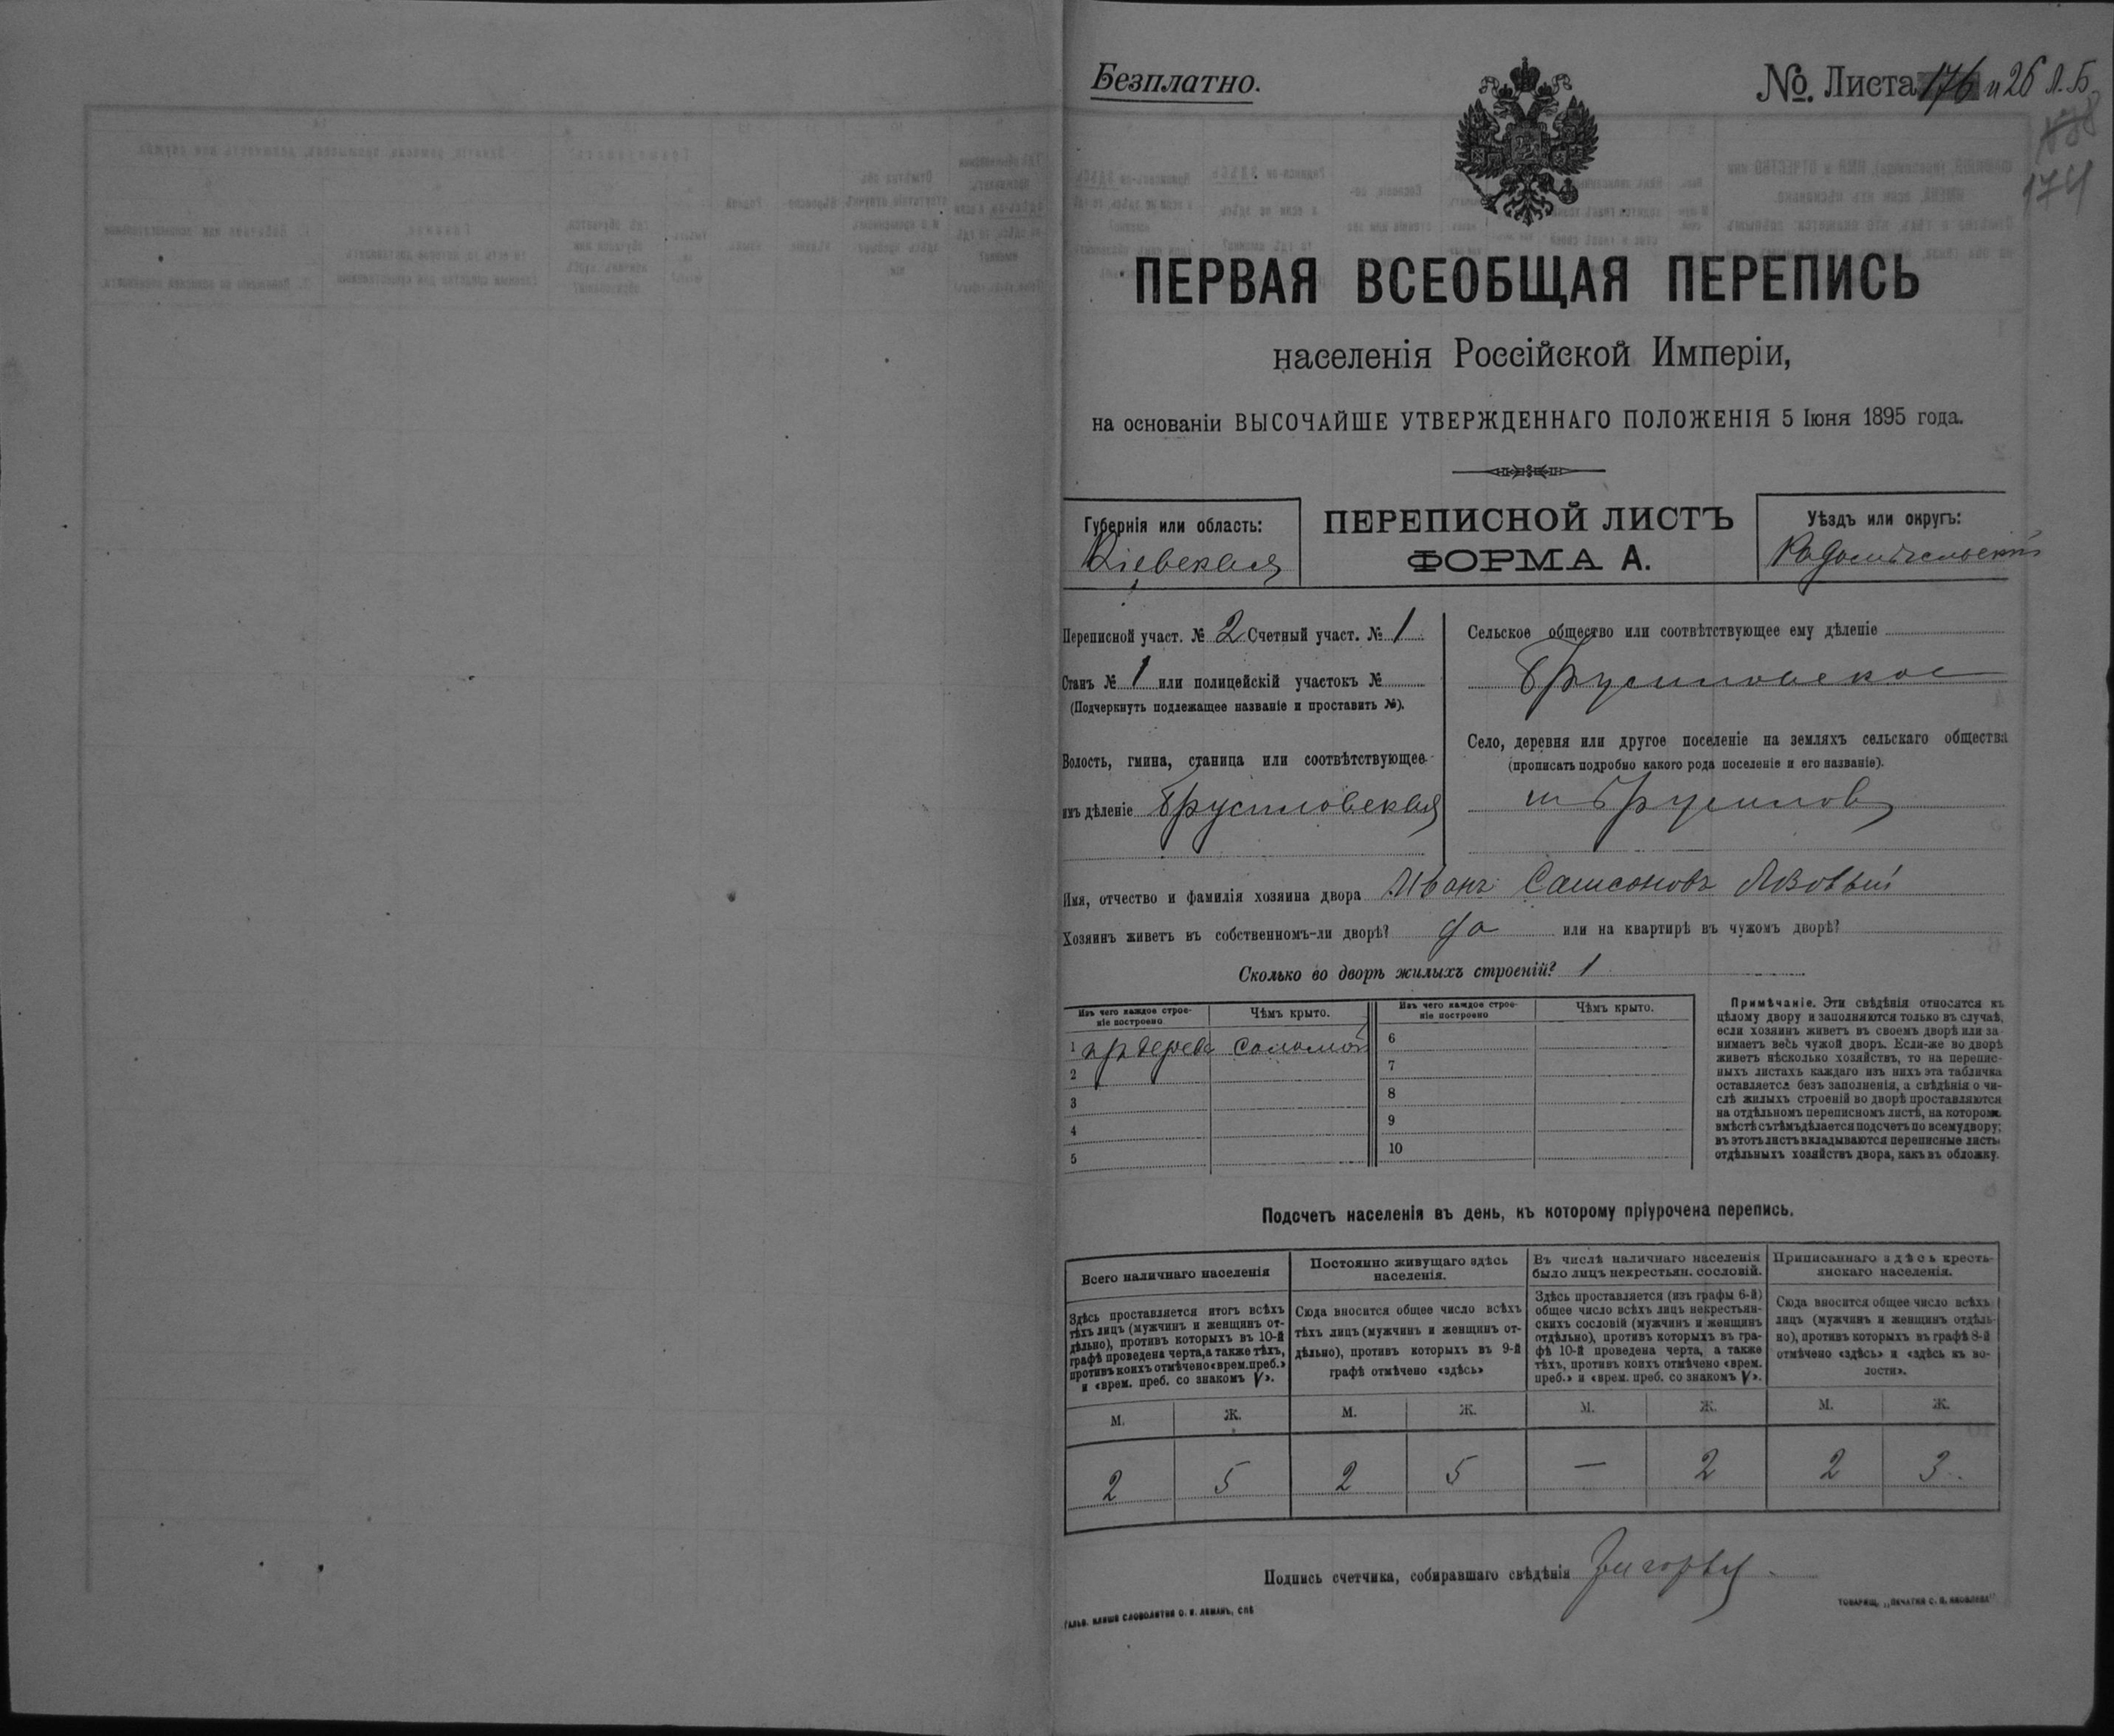 Безплатно.
№ Листа 176 и 26 Л. Б.
174
ПЕРВАЯ ВСЕОБЩАЯ ПЕРЕПИСЬ
населенія Россійской Имперіи,
на основаніи ВЫСОЧАЙШЕ УТВЕРЖДЕННАГО ПОЛОЖЕНІЯ 5 Іюня 1895 года.
Губернія или область:
Кіевская
ПЕРЕПИСНОЙ ЛИСТЪ
ФОРМА А.
Уѣздъ или округъ:
Радомысльскій
Переписной участ. № 2 Счетный участ. № 1
Станъ № 1 или полицейскій участокъ №
(Подчеркнуть подлежащее названіе и проставить №).
Волость, гмина, станица или соотвѣтствующее
имъ дѣленіе Брусиловская
Сельское общество или соотвѣтствующее ему дѣленіе
Брусиловское
Село, деревня или другое поселеніе на земляхъ сельскаго общества
(прописать подробно какого рода поселеніе и его названіе).
м Брусиловъ
Имя, отчество и фамилія хозяина двора Иванъ Самсоновъ Лозовый
Хозяинъ живетъ въ собственномъ-ли дворѣ? да или на квартирѣ въ чужомъ дворѣ?
Сколько во дворѣ жилыхъ строеній? 1
Изъ чего каждое строе-
ніе построено
Чѣмъ крыто.
Изъ чего каждое строе-
ніе построено
Чѣмъ крыто.
1 дерева соломой
2
3
4
5
6
7
8
9
10
Примѣчаніе. Эти свѣдѣнія относятся къ
цѣлому двору и заполняются только въ случаѣ,
если хозяинъ живетъ въ своемъ дворѣ или за-
нимаетъ весь чужой дворъ. Если-же во дворѣ
живетъ нѣсколько хозяйствъ, то на перепис-
ныхъ листахъ каждаго изъ нихъ эта табличка
оставляется безъ заполненія, а свѣдѣнія о чи-
слѣ жилыхъ строеній во дворѣ проставляются
на отдѣльномъ переписномъ листѣ, на которомъ
вмѣстѣ съ тѣмъ дѣлается подсчетъ по всему двору;
въ этотъ листъ вкладываются переписные листы
отдѣльныхъ хозяйствъ двора, какъ въ обложку.
Подсчетъ населенія въ день, къ которому пріурочена перепись.
Всего наличнаго населенія
Здѣсь проставляется итогъ всѣхъ
тѣхъ лицъ (мужчинъ и женщинъ от-
дѣльно), противъ которыхъ въ 10-й
графѣ проведена черта, а также тѣхъ,
противъ коихъ отмѣчено «врем. преб.»
и «врем. преб. со знакомъ V».
Постоянно живущаго здѣсь
населенія.
Сюда вносится общее число всѣхъ
тѣхъ лицъ (мужчинъ и женщинъ от-
дѣльно), противъ которыхъ въ 9-й
графѣ отмѣчено «здѣсь»
Въ числѣ наличнаго населенія
было лицъ некрестьян. сословій.
Здѣсь проставляется (изъ графы 6-й)
общее число всѣхъ лицъ некрестьян-
скихъ сословій (мужчинъ и женщинъ
отдѣльно), противъ которыхъ въ гра-
фѣ 10-й проведена черта, а также
тѣхъ, противъ коихъ отмѣчено «врем.
преб.» и «врем. преб. со знакомъ V».
Приписаннаго здѣсь кресть-
янскаго населенія.
Сюда вносится общее число всѣхъ
лицъ (мужчинъ и женщинъ отдѣль-
но), противъ которыхъ въ графѣ 8-й
отмѣчено «здѣсь» и «здѣсь въ во-
лости».
М. Ж. М. Ж. М. Ж. М. Ж.
2 5 2 5 — 2 2 3
Подпись счетчика, собиравшаго свѣдѣнія
ГАЛЬВ. КЛИШЕ СЛОВОЛИТНИ О. И. ЛЕМАНЪ, СПБ
ТОВАРИЩ. „ПЕЧАТНЯ С. П. ЯКОВЛЕВА“